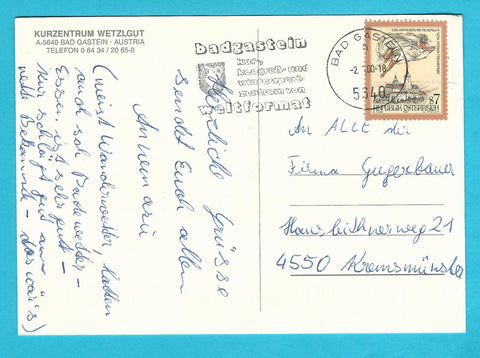 KURZENTRUM WETZLGUT
A-5640 BAD GASTEIN · AUSTRIA
TELEFON 0 64 34 / 20 65-0
badgastein
kur,
kongreß- und
wintersport-
zentrum von
weltformat
BAD GASTEIN
-2. .00-18
5640
REPUBLIK ÖSTERREICH
S7
Herzliche Grüsse
sendet Euch allen
Annemarie
(meist Wanderwetter, hatten
auch schon Badewetter -
Essen ist sehr gut -
Kur schlägt gut an -
nette Bekannte - das wär's)
An ALLE der
Firma Gugerbauer
Hausleithnerweg 21
4550 Kremsmünster